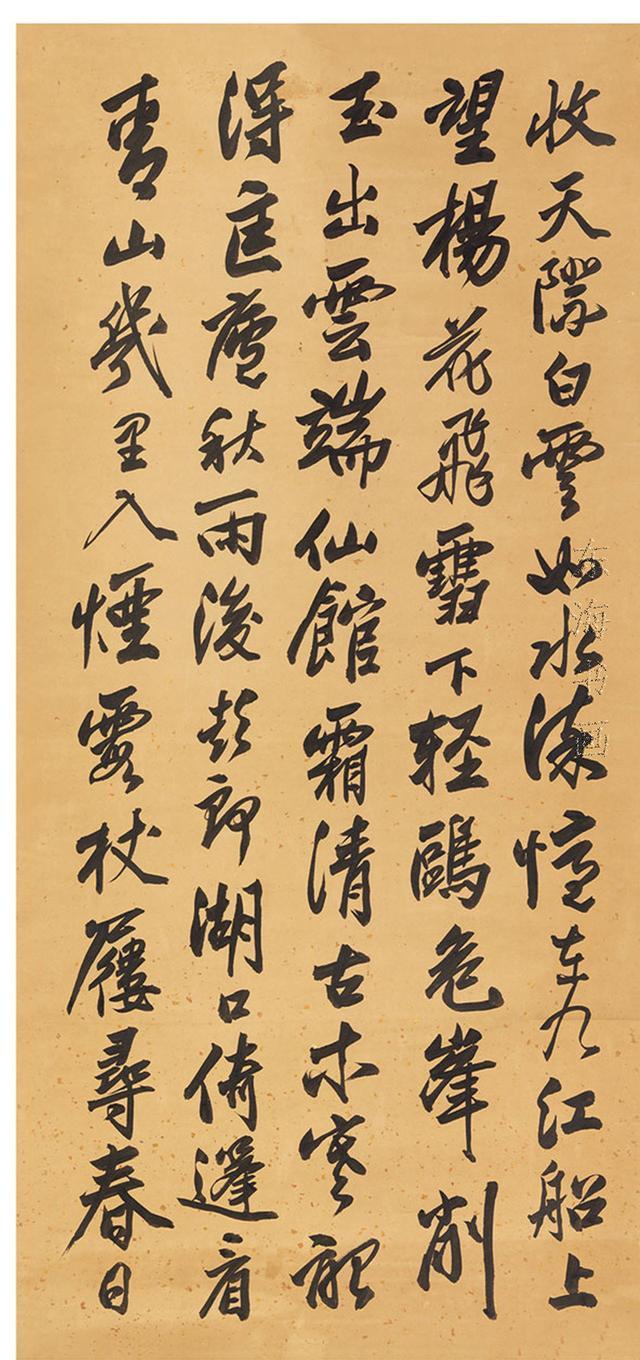 收天際白雲如水憶在九江船上
望楊花飛雪下軽鷗危峯削
玉出雲端仙館霜清古木寒記
得匡廬秋雨後彭郎湖口倚篷看
青山幾里入煙霞杖屨尋春日
东海书画